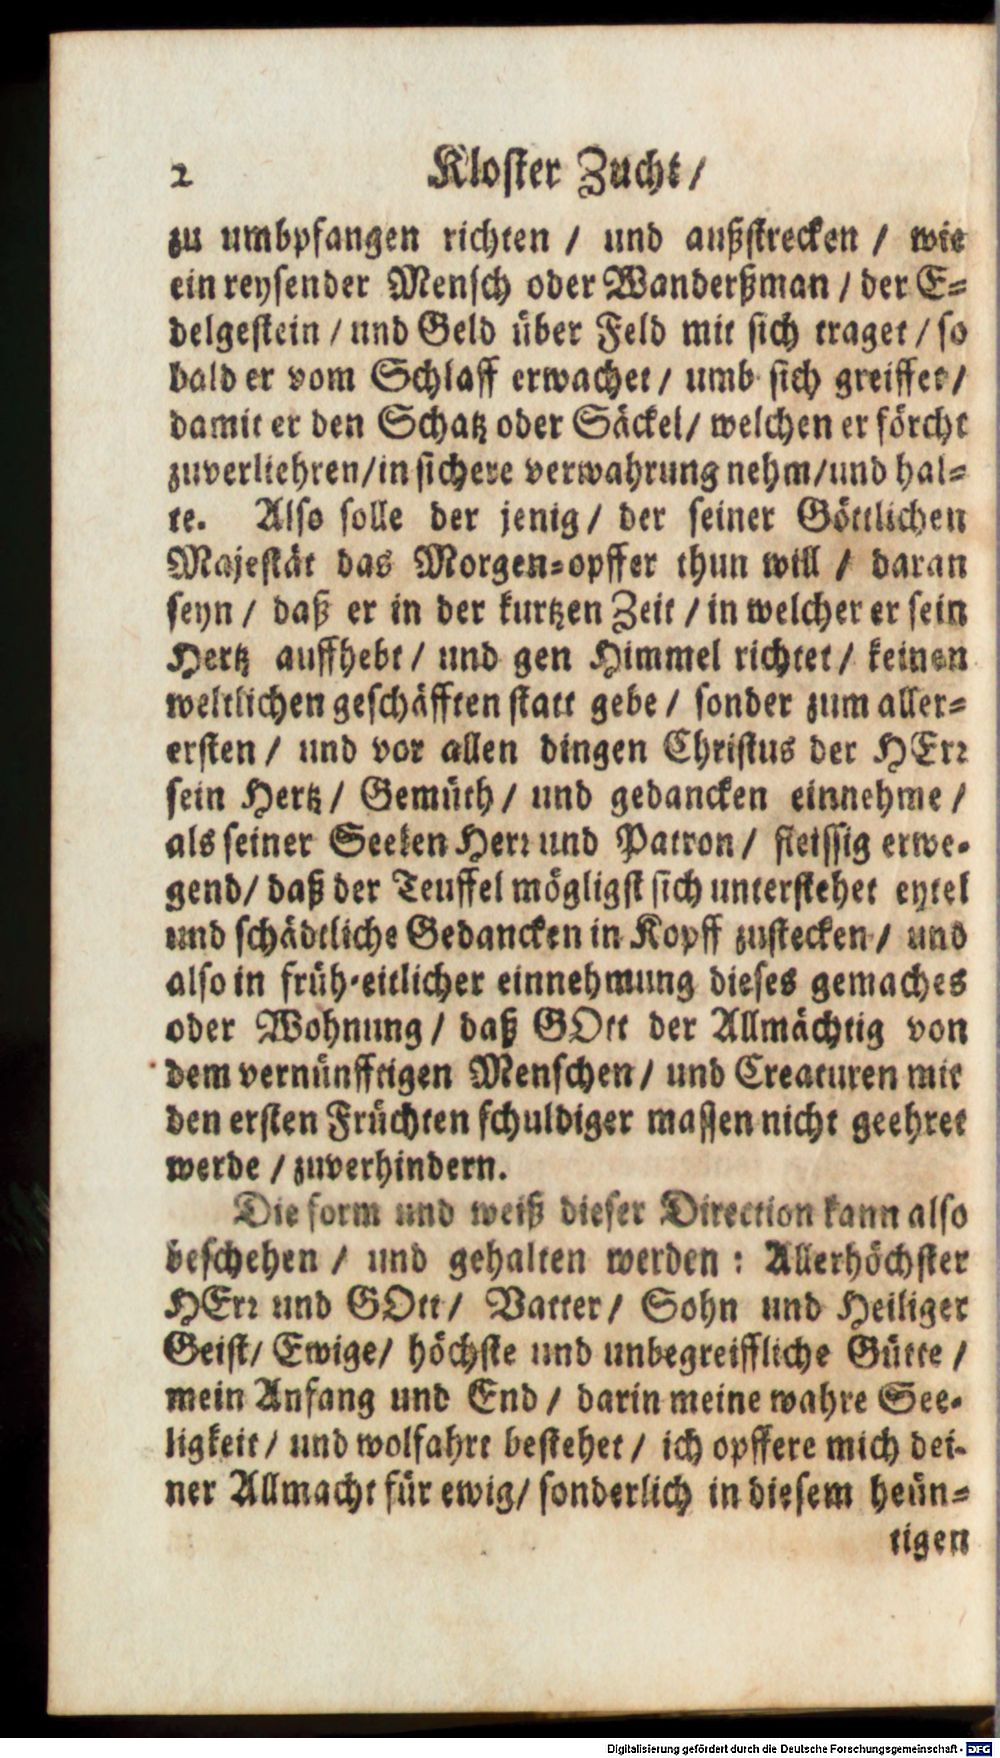 2 Kloster Zucht /
zu umbpfangen richten / und außstrecken / wie
ein reysender Mensch oder Wanderßman / der E=
delgestein / und Geld über Feld mit sich traget / so
bald er vom Schlaff erwachet / umb sich greiffet /
damit er den Schatz oder Säckel / welchen er förcht
zuverliehren / in sichere verwahrung nehm / und hal=
te. Also solle der jenig / der seiner Göttlichen
Majestät das Morgen=opffer thun will / daran
seyn / daß er in der kurtzen Zeit / in welcher er sein
Hertz auffhebt / und gen Himmel richtet / keinen
weltlichen geschäfften statt gebe / sonder zum aller=
ersten / und vor allen dingen Christus der HErr
sein Hertz / Gemüth / und gedancken einnehme /
als seiner Seelen Herr und Patron / fleissig erwe=
gend / daß der Teuffel mögligst sich unterstehet eytel
und schädliche Gedancken in Kopff zustecken / und
also in früh=eitlicher einnehmung dieses gemaches
oder Wohnung / daß GOtt der Allmächtig von
dem vernünfftigen Menschen / und Creaturen mit
den ersten Früchten schuldiger massen nicht geehret
werde / zuverhindern.
Die form und weiß dieser Direction kann also
beschehen / und gehalten werden : Allerhöchster
HErr und GOtt / Vatter / Sohn und Heiliger
Geist / Ewige / höchste und unbegreiffliche Gütte /
mein Anfang und End / darin meine wahre See=
ligkeit / und wolfahrt bestehet / ich opffere mich dei=
ner Allmacht für ewig / sonderlich in diesem heün=
tigen
Digitalisierung gefördert durch die Deutsche Forschungsgemeinschaft - DFG